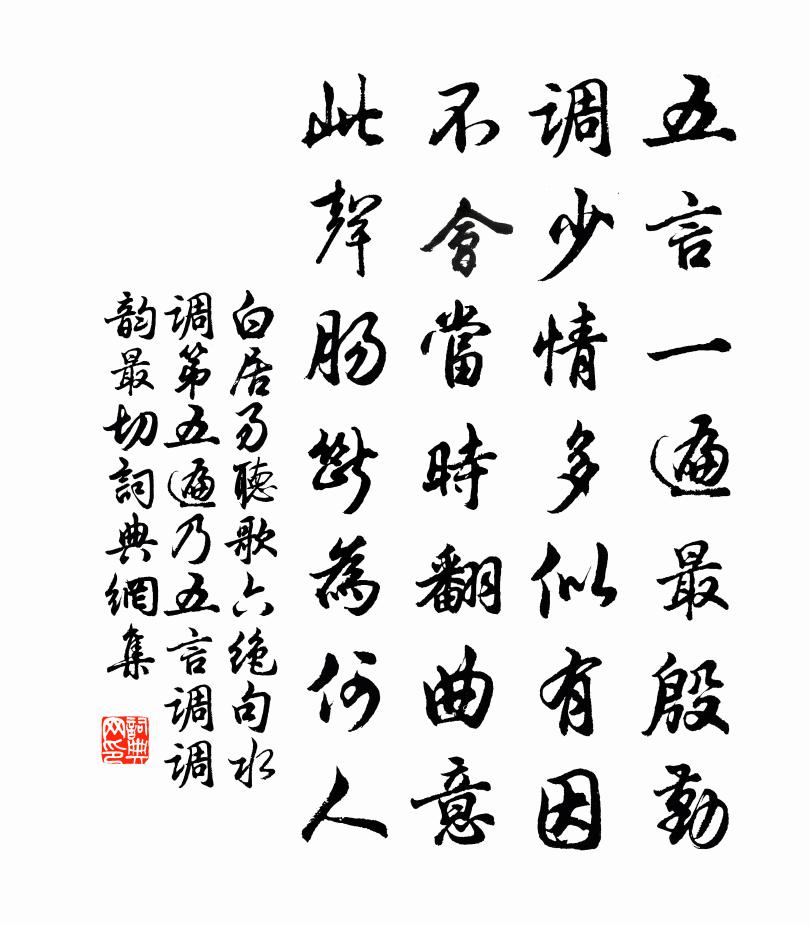 五言一遍最殷勤
调少情多似有因
不會當時翻曲意
此聲肠斷為何人
白居易聽歌六绝句水
调第五遍乃五言调调
韵最切詞典網集
詞典网印